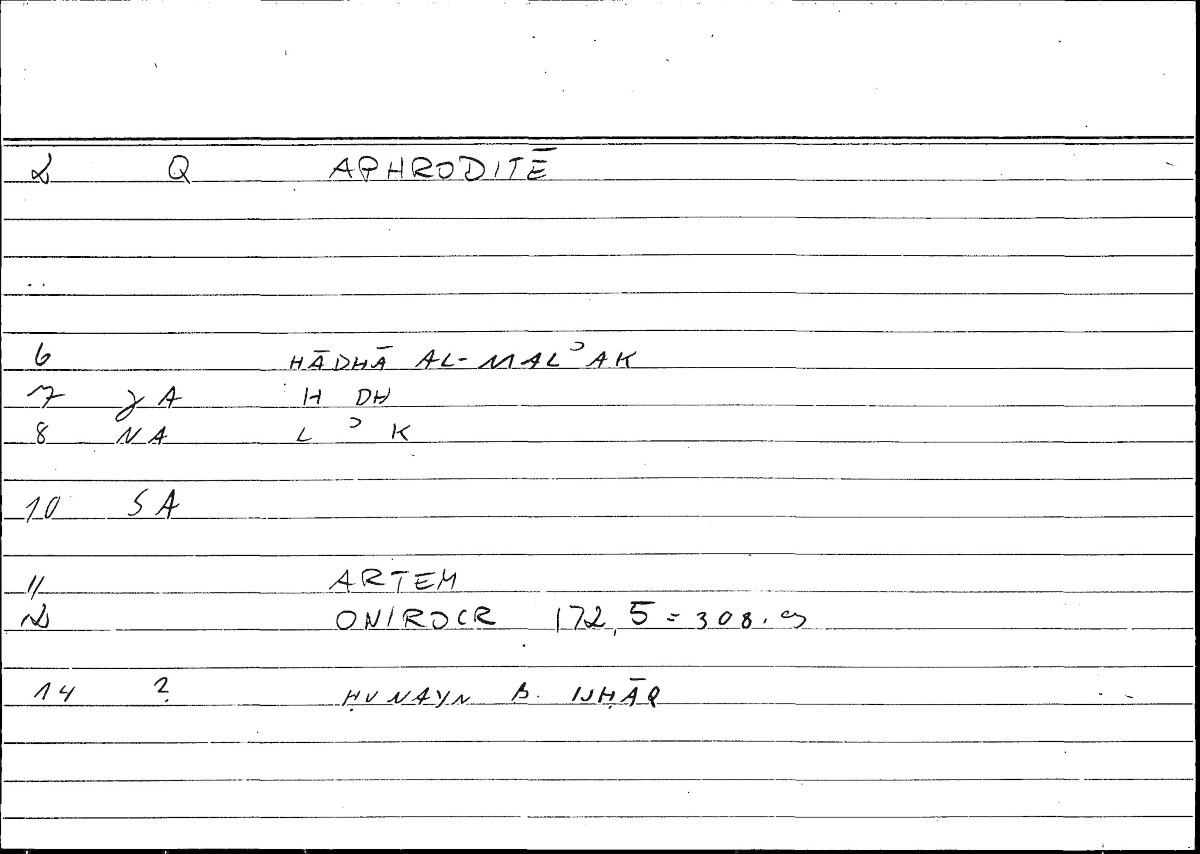 2 Q APHRODITĒ
..
6 HĀDHĀ AL-MALʾAK
7 JA H DH
8 NA L ʾ K
10 SA
11 ARTEM
12 ONIROCR 172,5 = 308.
14 ? ḤUNAYN B. ISḤĀQ